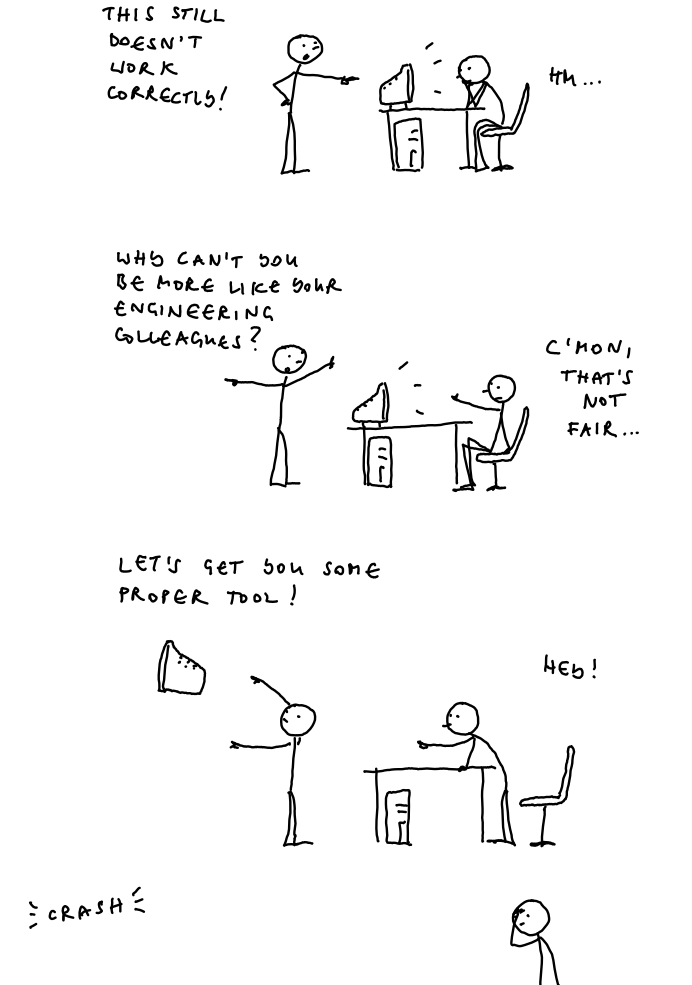 THIS STILL
DOESN'T
WORK
CORRECTLY!
HM...
WHY CAN'T YOU
BE MORE LIKE YOUR
ENGINEERING
COLLEAGUES?
C'MON,
THAT'S
NOT
FAIR...
LET'S GET YOU SOME
PROPER TOOL!
HEY!
CRASH